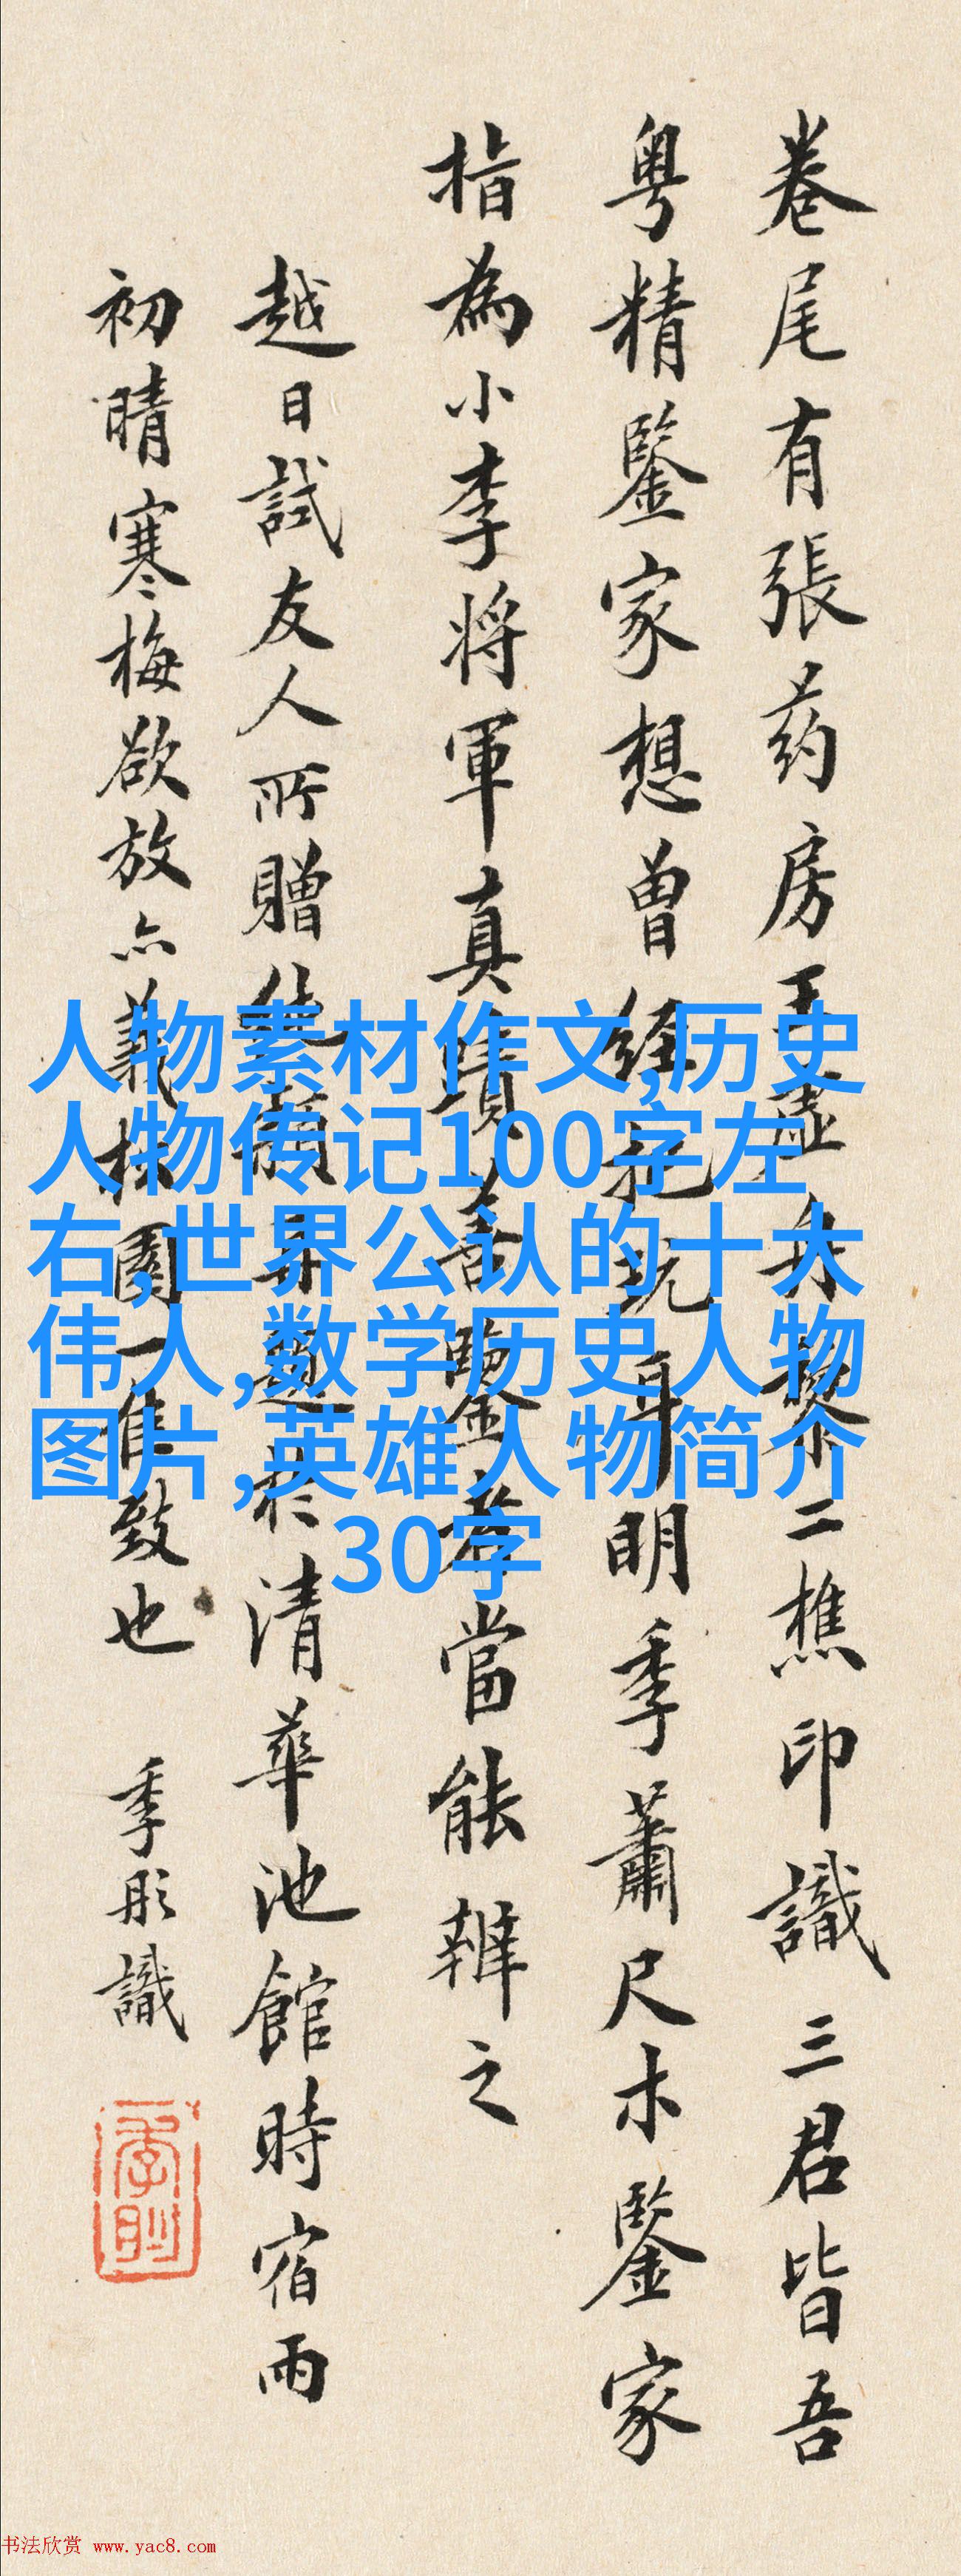 卷尾有張药房王虚舟黎二樵印識三君皆吾
粤精鑒家想曾經把玩耳明季蕭尺木鑒家
指為小李將軍真蹟善鑒者當能辨之
越日試友人所贈 於清華池館時宿雨
初晴寒梅欲放亦 園一佳致也 季彤識
人物素材作文,历史
人物传记100字左
右,世界公认的十大
伟人,数学历史人物
图片,英雄人物简介
30字
书法欣赏 www.yac8.com